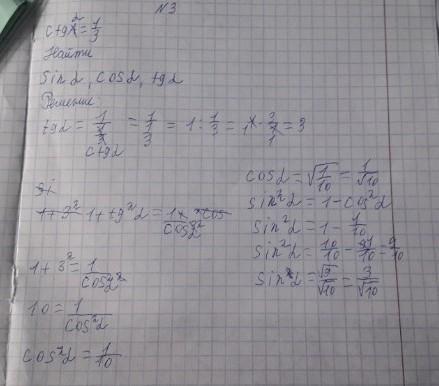 N3
ctgα = 1/3
Найти
sinα, cosα, tgα
Решение
tgα = 1/ctgα = 1/(1/3) = 1 : 1/3 = 1 · 3/1 = 3
1 + tg²α = 1/cos²α
1 + 3² = 1/cos²α
10 = 1/cos²α
cos²α = 1/10
cosα = √(1/10) = 1/√10
sin²α = 1 - cos²α
sin²α = 1 - 1/10
sin²α = 10/10 - 1/10 = 9/10
sinα = √9/√10 = 3/√10